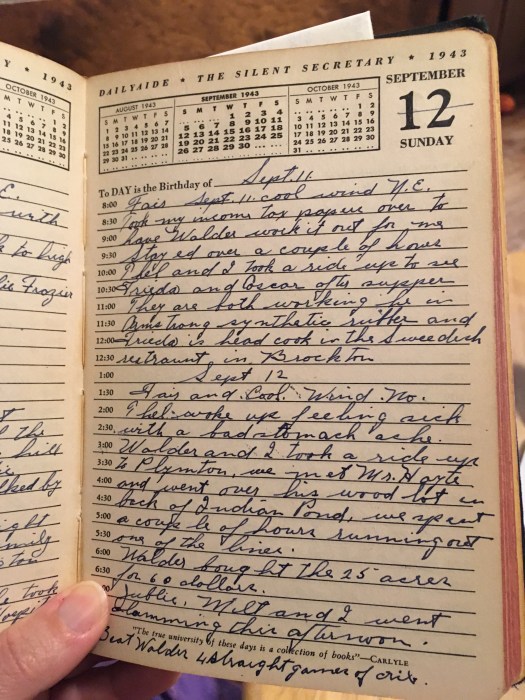 1943
OCTOBER 1943
DAILYAIDE ★ THE SILENT SECRETARY ★ 1943
AUGUST 1943
S M T W T F S
1 2 3 4 5 6 7
8 9 10 11 12 13 14
15 16 17 18 19 20 21
22 23 24 25 26 27 28
29 30 31
SEPTEMBER 1943
S M T W T F S
1 2 3 4
5 6 7 8 9 10 11
12 13 14 15 16 17 18
19 20 21 22 23 24 25
26 27 28 29 30
OCTOBER 1943
S M T W T F S
1 2
3 4 5 6 7 8 9
10 11 12 13 14 15 16
17 18 19 20 21 22 23
24 25 26 27 28 29 30
31
SEPTEMBER
12
SUNDAY
To DAY is the Birthday of Sept. 11.
8:00 Fair Sept. 11. cool wind N.E.
8:30 Took my income tax papers over to
9:00 have Walder work it out for me
9:30 Stayed over a couple of hours
10:00 Thel and I took a ride up to see
10:30 Frieda and Oscar after supper
11:00 They are both working he in
11:30 Armstrong synthetic rubber and
12:00 Frieda is head cook in the Sweedish
12:30 restraunt in Brockton
1:00 Sept 12
1:30 Fair and Cool. Wind No.
2:00 Thel. woke up feeling sick
2:30 with a bad stomach ache.
3:00 Walder and I took a ride up
3:30 to Plymton, we met Mr. Hayte
4:00 and went over his wood lot in
4:30 back of Indian Pond, we spent
5:00 a couple of hours running out
5:30 one of the lines.
6:00 Walder bought the 25 acres
6:30 for 60 dollars.
Milt and I went
clamming this afternoon.
"The true university of these days is a collection of books"—CARLYLE
Beat Walder 4 straight games of crib.